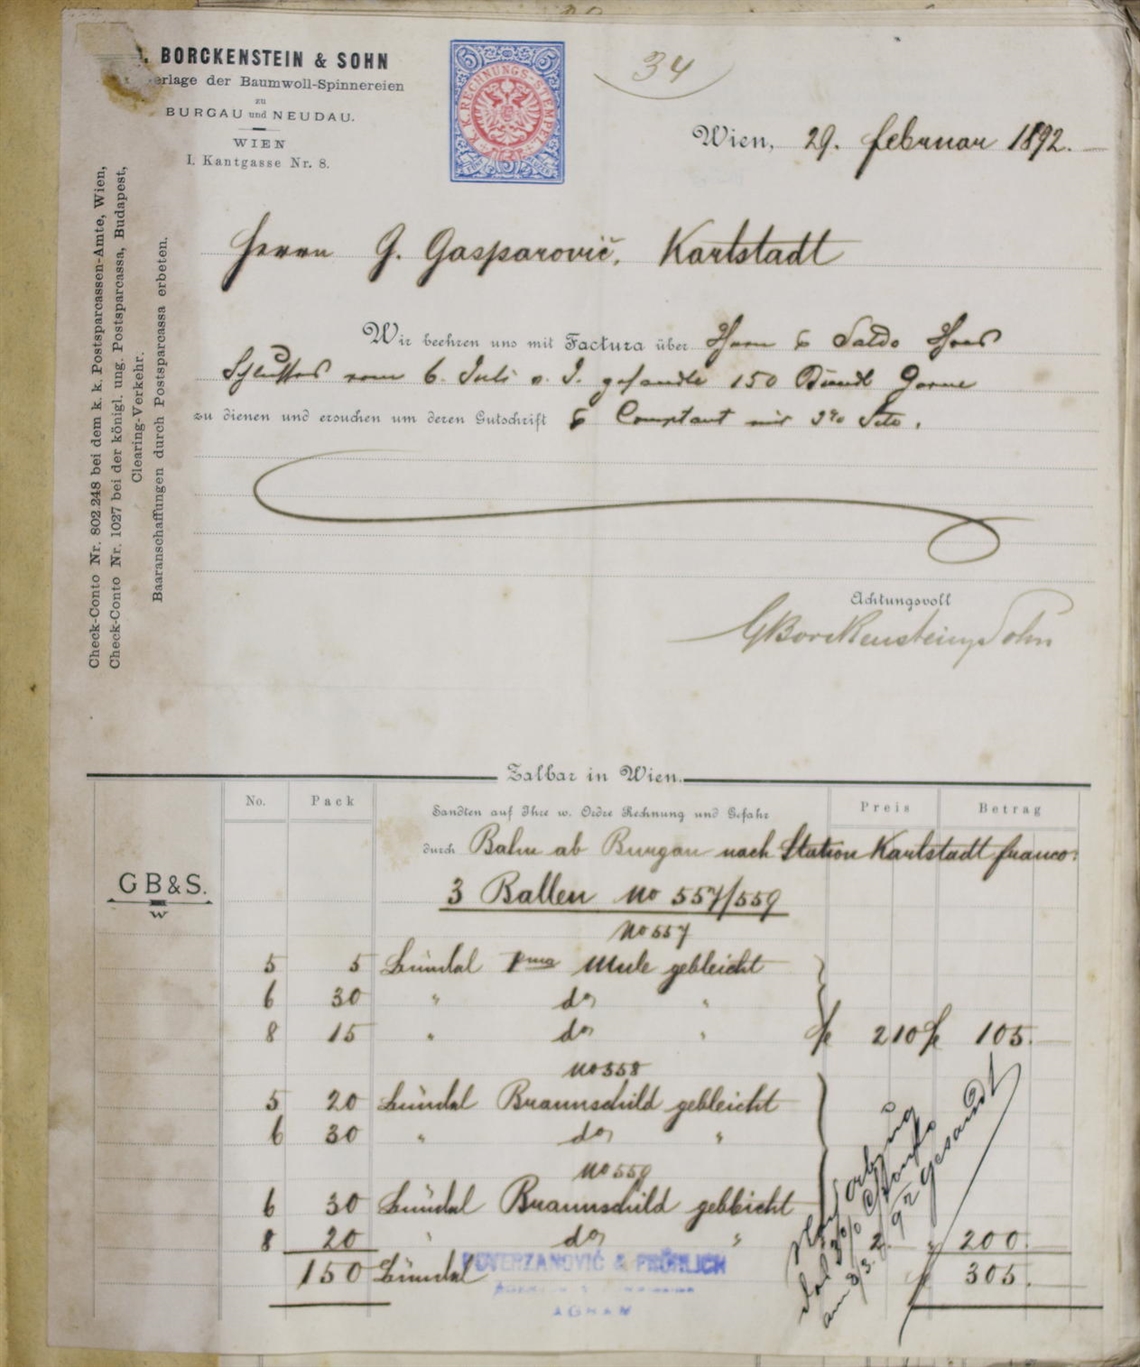 BORCKENSTEIN & SOHN
erlage der Baumwoll-Spinnereien
zu
BURGAU und NEUDAU.
WIEN
I. Kantgasse Nr. 8.
K. K. RECHNUNGS-STEMPEL
5
34
Wien, 29. Februar 1892.
Check-Conto Nr. 802.248 bei dem k. k. Postsparcassen-Amte, Wien,
Check-Conto Nr. 1027 bei der königl. ung. Postsparcassa, Budapest,
Clearing-Verkehr.
Baaranschaffungen durch Postsparcassa erbeten.
Herrn G. Gasparovič. Karlstadt
Wir beehren uns mit Factura über Saldo
Schlusses vom 6. Juli v. J. gesandte 150 Bündl Garne
zu dienen und ersuchen um deren Gutschrift Comptant mit Scto.
Achtungsvoll
GBorckenstein & Sohn
Zalbar in Wien.
No. Pack Sandten auf Ihre w. Ordre Rechnung und Gefahr Preis Betrag
durch Bahn ab Burgau nach Station Karlstadt franco:
G B & S.
W
3 Ballen No 557/559
No 557
5 5 Bündel Ima Mule gebleicht
6 30 " do "
8 15 " do " 210 105.
No 558
5 20 Bündel Braunschild gebleicht
6 30 " do "
No 559
6 30 Bündel Braunschild gebleicht
8 20 " do " 2. " 200.
150 Bündel 305.
am 3/3. 92 gesandt
& FRÖHLICH
AGRAM